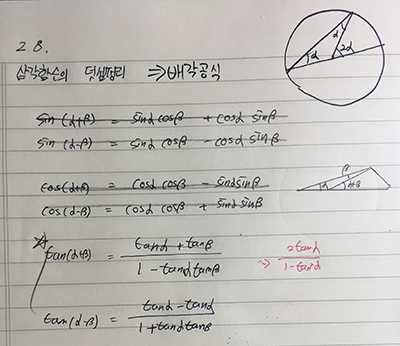 28.
삼각함수의 덧셈정리 ⇒ 배각공식
sin(α+β) = sinα cosβ + cosα sinβ
sin(α-β) = sinα cosβ - cosα sinβ
cos(α+β) = cosα cosβ - sinα sinβ
cos(α-β) = cosα cosβ + sinα sinβ
☆ tan(α+β) = (tanα + tanβ) / (1 - tanα tanβ) ⇒ 2tanα / (1 - tan²α)
tan(α-β) = (tanα - tanα) / (1 + tanα tanβ)
α
α
2α
β
α
α+β